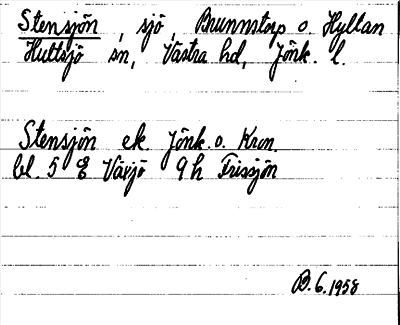 Stensjön, sjö, Brunnstorp o. Hyllan
Hultsjö sn, Västra hd, Jönk. l.
Stensjön ek Jönk. o. Kron.
bl. 5 E Växjö 9 h Frissjön
B. 6. 1958